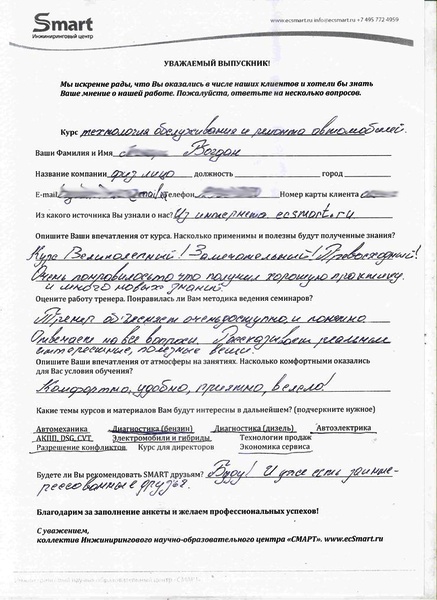 Smart
Инжиниринговый центр
www.ecsmart.ru info@ecsmart.ru +7 495 772 4959
УВАЖАЕМЫЙ ВЫПУСКНИК!
Мы искренне рады, что Вы оказались в числе наших клиентов и хотели бы знать
Ваше мнение о нашей работе. Пожалуйста, ответьте на несколько вопросов.
Курс технология обслуживания и ремонта автомобилей.
Ваши Фамилия и Имя Богдан
Название компании физ лицо должность город
E-mail Телефон Номер карты клиента
Из какого источника Вы узнали о нас? Из интернета ecsmart.ru
Опишите Ваши впечатления от курса. Насколько применимы и полезны будут полученные знания?
Курс Великолепный! Замечательный! Превосходный!
Очень понравилось то что получил хорошую практику
и много новых знаний.
Оцените работу тренера. Понравилась ли Вам методика ведения семинаров?
Тренер объясняет очень доступно и понятно
Отвечает на все вопросы. Рассказывает реальные
интересные, полезные вещи.
Опишите Ваши впечатления от атмосферы на занятиях. Насколько комфортными оказались
для Вас условия обучения?
Комфортно, удобно, приятно, весело!
Какие темы курсов и материалов Вам будут интересны в дальнейшем? (подчеркните нужное)
Автомеханика Диагностика (бензин) Диагностика (дизель) Автоэлектрика
АКПП, DSG, CVT Электромобили и гибриды Технологии продаж
Разрешение конфликтов Курс для директоров Экономика сервиса
Будете ли Вы рекомендовать SMART друзьям? Буду! И уже есть заинте-
ресованные друзья.
Благодарим за заполнение анкеты и желаем профессиональных успехов!
С уважением,
коллектив Инжинирингового научно-образовательного центра «СМАРТ». www.ecSmart.ru